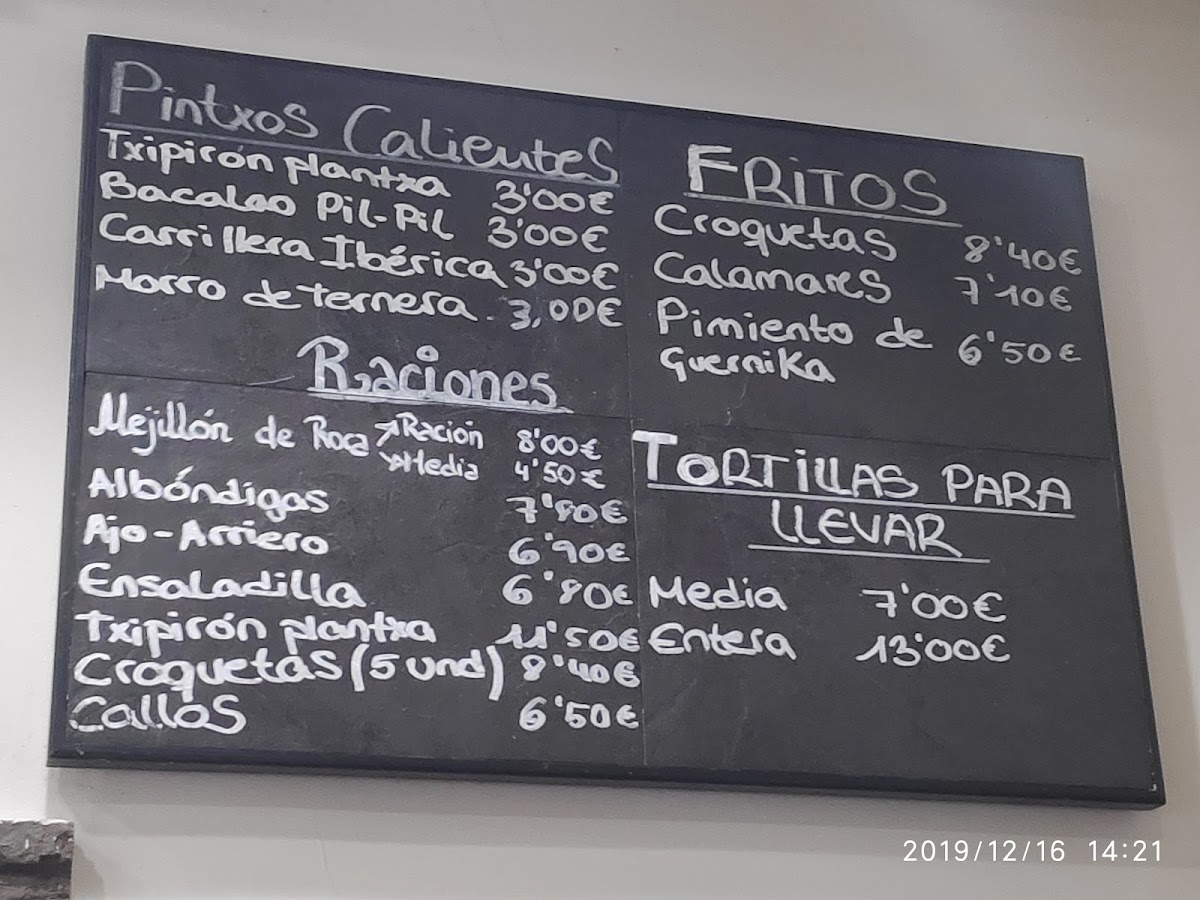 Pintxos Calientes
Txipirón plantxa 3'00€
Bacalao Pil-Pil 3'00€
Carrillera Ibérica 3'00€
Morro de ternera 3,00€
Raciones
Mejillón de Roca Ración 8'00€
Media 4'50€
Albóndigas 7'80€
Ajo-Arriero 6'90€
Ensaladilla 6'80€
Txipirón plantxa 11'50€
Croquetas (5 und) 8'40€
Callos 6'50€
FRITOS
Croquetas 8'40€
Calamares 7'10€
Pimiento de 6'50€
Guernika
TORTILLAS PARA
LLEVAR
Media 7'00€
Entera 13'00€
2019/12/16 14:21